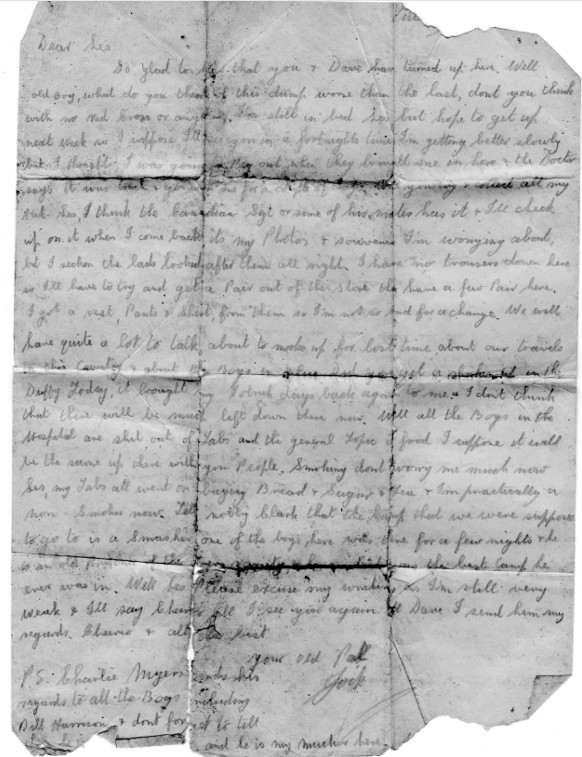 Dear Les
So glad to that you & Dave have turned up here. Well
old Boy, what do you think of this dump worse than the last, dont you think
with no red Cross or anything. I'm still in bed Les but hope to get up
next week so I suppose I'll you in a fortnights time I'm getting better slowly
but I thought I was going when they brought me in here & the Doctor
says it was me for a all my
Les, I think the Canadian Sgt or some of his mates has it & I'll check
up on it when I come back its my Photos & souvenirs I'm worrying about,
but I reckon the lads looked after them all right. I have no trousers down here
so I'll have to try and get a Pair out of the store they have a few Pair here,
I got a vest, Pants & Shirt from them so I'm not so bad for a change. We will
have quite a lot to talk about to make up for lost time about our travels
in this Country & about the Boys in in the
Duffy today, it brought my days back again to me. I dont think
that there will be much left down there now. Well all the Boys in the
Hospital are shit out of Tabs and the general Topic is food I suppose it will
be the same up there with you People, Smoking dont worry me much now
Les, my Tabs all went on buying Bread & Sugar & & I'm practically a
non-Smoker now. Tell Clark that the Camp that we were supposed
to go to is a Smasher one of the boys here was there for a few nights & he
is an old the best Camp he
ever was in. Well Les Please excuse my writing as I'm still very
weak & I'll say Cheerio till I see you again Tell Dave I send him my
regards. Cheerio & all the best
your old Pal
Jock
P.S. Charlie Myers sends his
regards to all the Boys including
Bill Harrison & dont forget to tell
and he is my mucker here